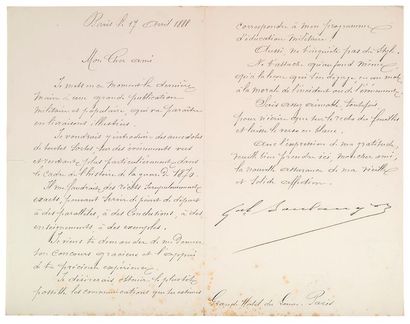 Paris le 17 Avril 1888
Mon Cher ami
Je mets en ce moment la dernière
main à une grande publication
militaire et populaire qui va paraître
en livraisons illustrées.
Je voudrais y introduire des anecdotes
de toutes sortes sur des événements vus
et rentrant plus particulièrement dans
le cadre de l'histoire de la guerre de 1870.
Il me faudrait des récits scrupuleusement
exacts, pouvant servir de point de départ
à des parallèles, à des conclusions, à des
enseignements, à des exemples.
Je viens te demander de me donner
ton concours gracieux et l'appui
de ta précieuse expérience.
Je désirerais obtenir le plus tôt
possible les communications que tu estimes
correspondre à mon programme
d'éducation militaire.
Aussi, ne t'inquiète pas du style.
Ne t'attache qu'au fond même
qu'à la leçon qui s'en dégage, en un mot
à la morale de l'incident ou de l'événement.
Sois assez aimable toutefois
pour n'écrire que sur le recto des feuilles
et laisse le verso en blanc.
Avec l'expression de ma gratitude,
veuille bien prendre ici, mon cher ami,
la nouvelle assurance de ma vieille
et solide affection.
Gal Boulanger
Grand Hôtel du Louvre, Paris